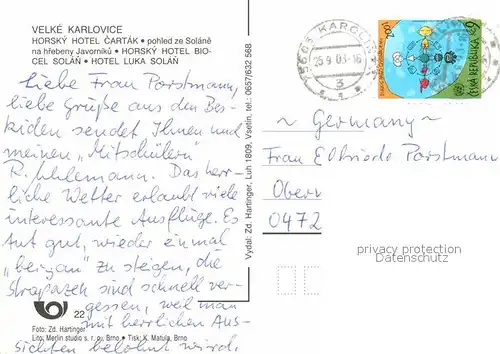 VELKÉ KARLOVICE
HORSKÝ HOTEL ČARTÁK • pohled ze Soláně
na hřebeny Javorníků • HORSKÝ HOTEL BIO-
CEL SOLÁŇ • HOTEL LUKA SOLÁŇ
Liebe Frau Porstmann,
liebe Grüße aus den Bes-
kiden sendet Ihnen und
meinen „Mitschülern"
R. Uhlemann. Das herr-
liche Wetter erlaubt viele
interessante Ausflüge. Es
tut gut, wieder einmal
„bergan" zu steigen, die
Strapazen sind schnell ver-
gessen, weil man
mit herrlichen Aus-
sichten belohnt wird.
22
Foto: Zd. Hartinger
Lito: Merlin studio s. r. o., Brno • Tisk: K. Matula, Brno
Vydal: Zd. Hartinger, Luh 1809, Vsetín, tel.: 0657/632 568
25.9.03-16
3
ČESKÁ REPUBLIKA
9
~ Germany ~
Frau Elfriede Porstmann
Obern
0472
privacy protection
Datenschutz